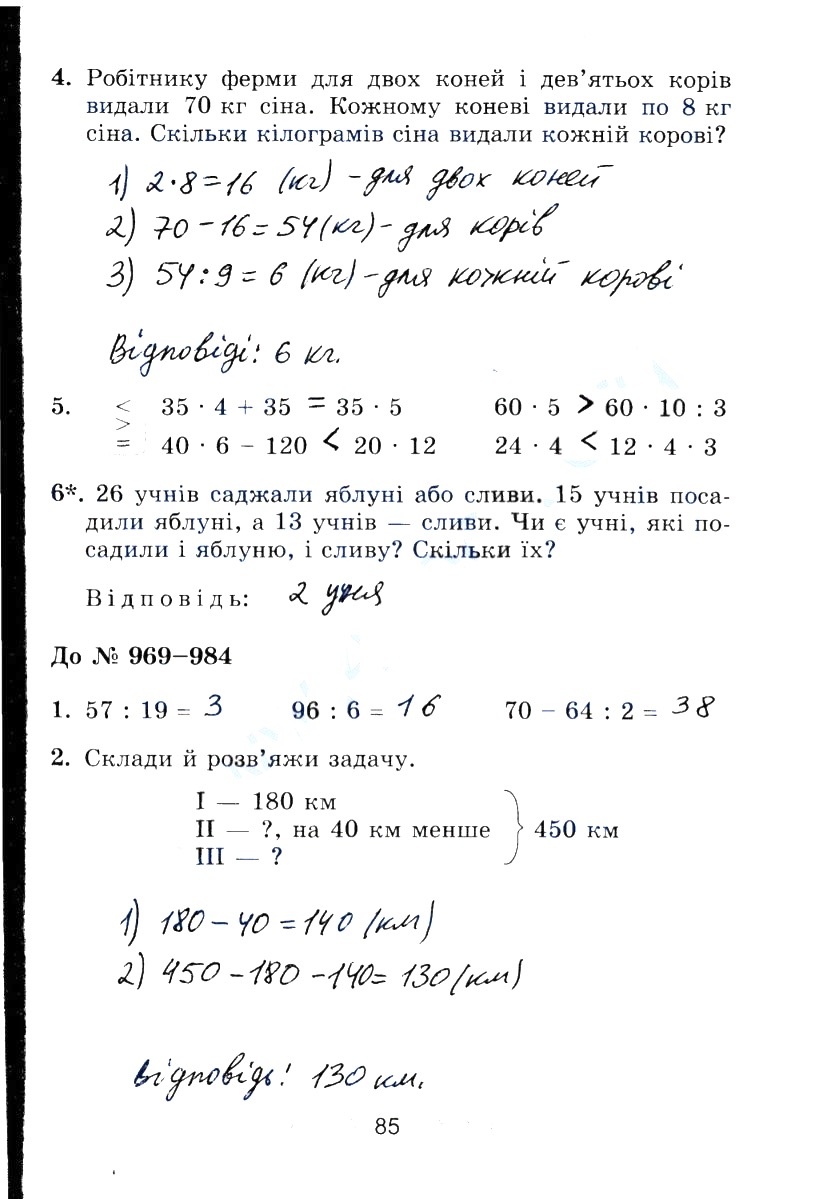 4. Робітнику ферми для двох коней і дев’ятьох корів
видали 70 кг сіна. Кожному коневі видали по 8 кг
сіна. Скільки кілограмів сіна видали кожній корові?
1) 2·8=16 (кг) - для двох коней
2) 70-16=54(кг) - для корів
3) 54:9=6 (кг) - для кожній корові
Відповіді: 6 кг.
5. < 35 · 4 + 35 = 35 · 5 60 · 5 > 60 · 10 : 3
>
= 40 · 6 – 120 < 20 · 12 24 · 4 < 12 · 4 · 3
6*. 26 учнів саджали яблуні або сливи. 15 учнів поса-
дили яблуні, а 13 учнів — сливи. Чи є учні, які по-
садили і яблуню, і сливу? Скільки їх?
Відповідь: 2 учня
До № 969–984
1. 57 : 19 = 3 96 : 6 = 16 70 – 64 : 2 = 38
2. Склади й розв’яжи задачу.
I — 180 км
II — ?, на 40 км менше } 450 км
III — ?
1) 180-40=140 (км)
2) 450-180-140=130(км)
Відповідь: 130 км.
85